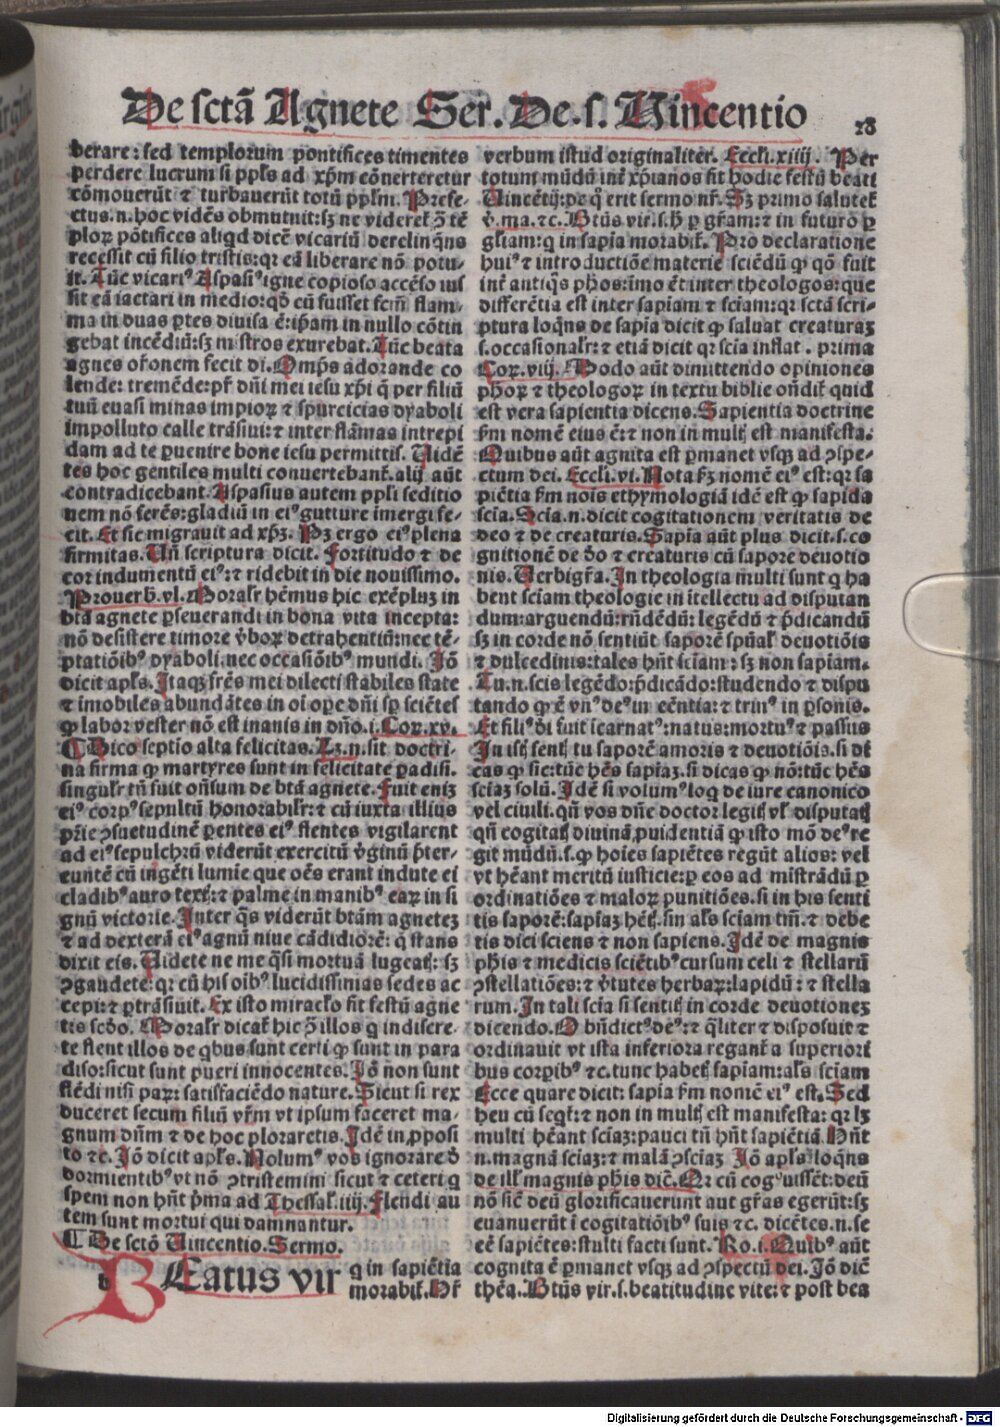 De sctā Agnete Ser. De.s. Uincentio
18
berare: sed templorum pontifices timentes
perdere lucrum si ppłs ad xp̄m cōnerteretur
cōmouerūt ⁊ turbauerūt totū pplm̄. Prefe-
ctus.n. hoc vidēs obmutuit: sꝫ ne videret̄ ↄ̄ tē
ploꝝ pōtifices aliqd dicē vicariū derelinq̄ns
recessit cū filio tristis: qꝛ eā liberare nō potu-
it. Tūc vicariꝰ Aspasiꝰ igne copioso accēso ius
sit eā iactari in medio: qđ cū fuisset fcm̄ flam-
ma in duas ꝑtes diuisa ē: ip̄am in nullo cōtin
gebat incēdiū: sꝫ mīstros exurebat. Tūc beata
agnes or̄onem fecit di. Omp̄s adorande co
lende: tremēde: pr̄ dn̄i mei iesu xp̄i q̄ per filiū
tuū euasi minas impioꝝ ⁊ spurcicias dyaboli
impolluto calle trāsiui: ⁊ inter flāmas intrepi
dam ad te ꝑuenire bone iesu permittis. Uidē
tes hoc gentiles multi conuertebant̄. alij aūt
contradicebant. Aspasius autem ppłi seditio
nem nō ferēs: gladiū in eiꝰ gutture imergi fe-
cit. Et sic migrauit ad xp̄ꝫ. Pꝫ ergo eiꝰ plena
firmitas. Uñ scriptura dicit. Fortitudo ⁊ de
cor indumentū eiꝰ: ⁊ ridebit in die nouissimo.
Prouerb. vl. Moralr̄ hēmus hic exēpluꝫ in
btā agnete ꝑseuerandi in bona vita incepta:
nō desistere timore v̄boꝝ detrahentiū: nec tē-
ptatiōibꝰ dyaboli. nec occasiōibꝰ mundi. Iō
dicit apłs. Itaqꝫ fr̄es mei dilecti stabiles state
⁊ imobiles abundātes in oi oꝑe dn̄i sꝑ sciētes
ꝙ labor vester nō est inanis in dn̄o. i. Coꝝ. xv.
¶ Dico septio alta felicitas. Lꝫ.n. sit doctri-
na firma ꝙ martyres sunt in felicitate ꝑadisi.
singulr̄ tn̄ fuit on̄sum de btā agnete. Fuit eniꝫ
eiꝰ corpꝰ sepultū honorabilr̄: ⁊ cū iuxta illius
pr̄ie ↄsuetudinē ꝑentes eiꝰ flentes vigilarent
ad eiꝰ sepulchrū viderūt exercitū v̄ginū p̄ter-
euntē cū ingēti lumie que oēs erant indute ei
cladibꝰ auro textꝭ: ⁊ palme in manibꝰ eaꝝ in si
gnū victorie. Inter q̄s viderūt btām agneteꝫ
⁊ ad dexterā eiꝰ agnū niue cādidiorē: q̄ stans
dixit eis. Uidete ne me q̄si mortuā lugeatꝭ: sꝫ
ↄgaudete: qꝛ cū his oibꝰ lucidissimas sedes ac
cepi: ⁊ ꝑtrāsiuit. Ex isto miracło fit festū agne
tis scđo. Moralr̄ dicat̄ hic ↄ̄ illos q̄ indiscre-
te flent illos de qbus sunt certi ꝙ sunt in para
diso: sicut sunt pueri innocentes. Iō non sunt
flēdi nisi paꝝ: satisfaciēdo nature. Sicut si rex
duceret secum filiū vr̄m vt ipsum faceret ma-
gnum dn̄m ⁊ de hoc ploraretis. Idē in ꝓposi
to ⁊c. Iō dicit apłs. Nolumꝰ vos ignorare đ
dormientibꝰ vt nō ↄtristemini sicut ⁊ ceteri q
spem non hn̄t p̄ma ad Thessal. iiij. Flendi au
tem sunt mortui qui damnantur.
¶ De sctō Uincentio. Sermo.
BEatus vir q in sapiētia
morabił. Hr̄
verbum istud originaliter. Eccłi. xiiij. Per
totum mūdū int̄ xp̄ianos fit hodie festū beati
Uincētij: de q̊ erit sermo nr̄. Sꝫ primo salutet̄
v̄.ma. ⁊c. Btūs vir. s. h̄ ꝑ gr̄am: ⁊ in futuro ꝑ
gl̄iam: q in sapīa morabił. Pro declaratione
huiꝰ ⁊ introductiōe materie sciēdū ꝙ qō fuit
int̄ antiq̊s ph̄os: imo ēt inter theologos: que
differētia est inter sapīam ⁊ sciam: qꝛ sctā scri-
ptura loqn̄s de sapīa dicit ꝙ saluat creaturaꝫ
s. occasionalr̄: ⁊ etiā dicit qꝛ scīa inflat. prima
Coꝝ. viij. Modo aūt dimittendo opiniones
ph̄oꝝ ⁊ theologoꝝ in textu biblie on̄dit̄ quid
est vera sapientia dicens. Sapientia doctrine
fm̄ nomē eius ē: ⁊ non in multꝭ est manifesta.
Quibus aūt agnita est ꝑmanet vsqꝫ ad ↄspe-
ctum dei. Eccłi. vi. Nota fꝫ nomē eiꝰ est: qꝛ sa
piētia fm̄ nois ethymologiā idē est ꝙ sapida
scīa. Scīa.n. dicit cogitationem veritatis de
deo ⁊ de creaturis. Sapīa aūt plus dicit. s. co
gnitionē de đo ⁊ creaturis cū sapore deuotio
nis. Uerbigr̄a. In theologia multi sunt q ha
bent sciam theologie in ītellectu ad disputan
dum: arguendū: rn̄dēdū: legēdū ⁊ p̄dicandū
sꝫ in corde nō sentiūt saporē spūał deuotiōis
⁊ dulcedinis: tales hn̄t sciam: sꝫ non sapīam.
Tu.n. scis legēdo: p̄dicādo: studendo ⁊ dispu
tando ꝙ ē vnꝰ deꝰ in eēntia: ⁊ trinꝰ in ꝑsonis.
Et filiꝰ di fuit īcarnatꝰ: natus: mortuꝰ ⁊ passus
In istꝭ sentꝭ tu saporē amoris ⁊ deuotiōis. si di
cas ꝙ sic: tūc hēs sapīaꝫ. si dicas ꝙ nō: tūc hēs
scīaꝫ solū. Idē si volumꝰ loq de iure canonico
vel ciuili. qn̄ vos dn̄e doctor legitꝭ vł disputatꝭ
qn̄ cogitatꝭ diuinā ꝓuidentiā ꝙ isto mō deꝰ re
git mūdū. s. ꝙ hoies sapiētes regūt alios: vel
vt hēant meritū iusticie: ꝑ eos ad mīstrādū ꝑ
ordinatiōes ⁊ maloꝝ punitiōes. si in his senti
tis saporē: sapīaꝫ hētꝭ. sin als̄ sciam tm̄. ⁊ debe
tis dici sciens ⁊ non sapiens. Idē de magnis
ph̄is ⁊ medicis sciētibꝰ cursum celi ⁊ stellarū
ↄstellatiōes: ⁊ v̄tutes herbaꝝ: lapidū: ⁊ stella
rum. In tali scīa si sentitꝭ in corde deuotioneꝫ
dicendo. O bn̄dictꝰ deꝰ: ⁊ q̄liter ⁊ disposuit ⁊
ordinauit vt ista inferiora regant̄ a superiori
bus corꝑibꝰ ⁊c. tunc habetꝭ sapīam: als̄ sciam
Ecce quare dicit: sapīa fm̄ nomē eiꝰ est. Sed
heu cū seqt̄: ⁊ non in multꝭ est manifesta: qꝛ lꝫ
multi hēant sciaꝫ: pauci tn̄ hn̄t sapiētiā. Hn̄t
n. magnā sciaꝫ: ⁊ malā ↄsciaꝫ Iō apłs loqn̄s
de illꝭ magnis ph̄is dic̄. Qꝛ cū cogꝰuissēt: deū
nō sic̄ deū glorificauerunt aut gr̄as egerūt: sꝫ
euanuerūt ī cogitatiōibꝰ suis ⁊c. dicētes.n. se
eē sapiētes: stulti facti sunt. Ro. i. Quibꝰ aūt
cognita ē ꝑmanet vsqꝫ ad ↄspectū dei. Iō dic̄
thēa. Btūs vir. s. beatitudine vite: ⁊ post bea
Digitalisierung gefördert durch die Deutsche Forschungsgemeinschaft - DFG